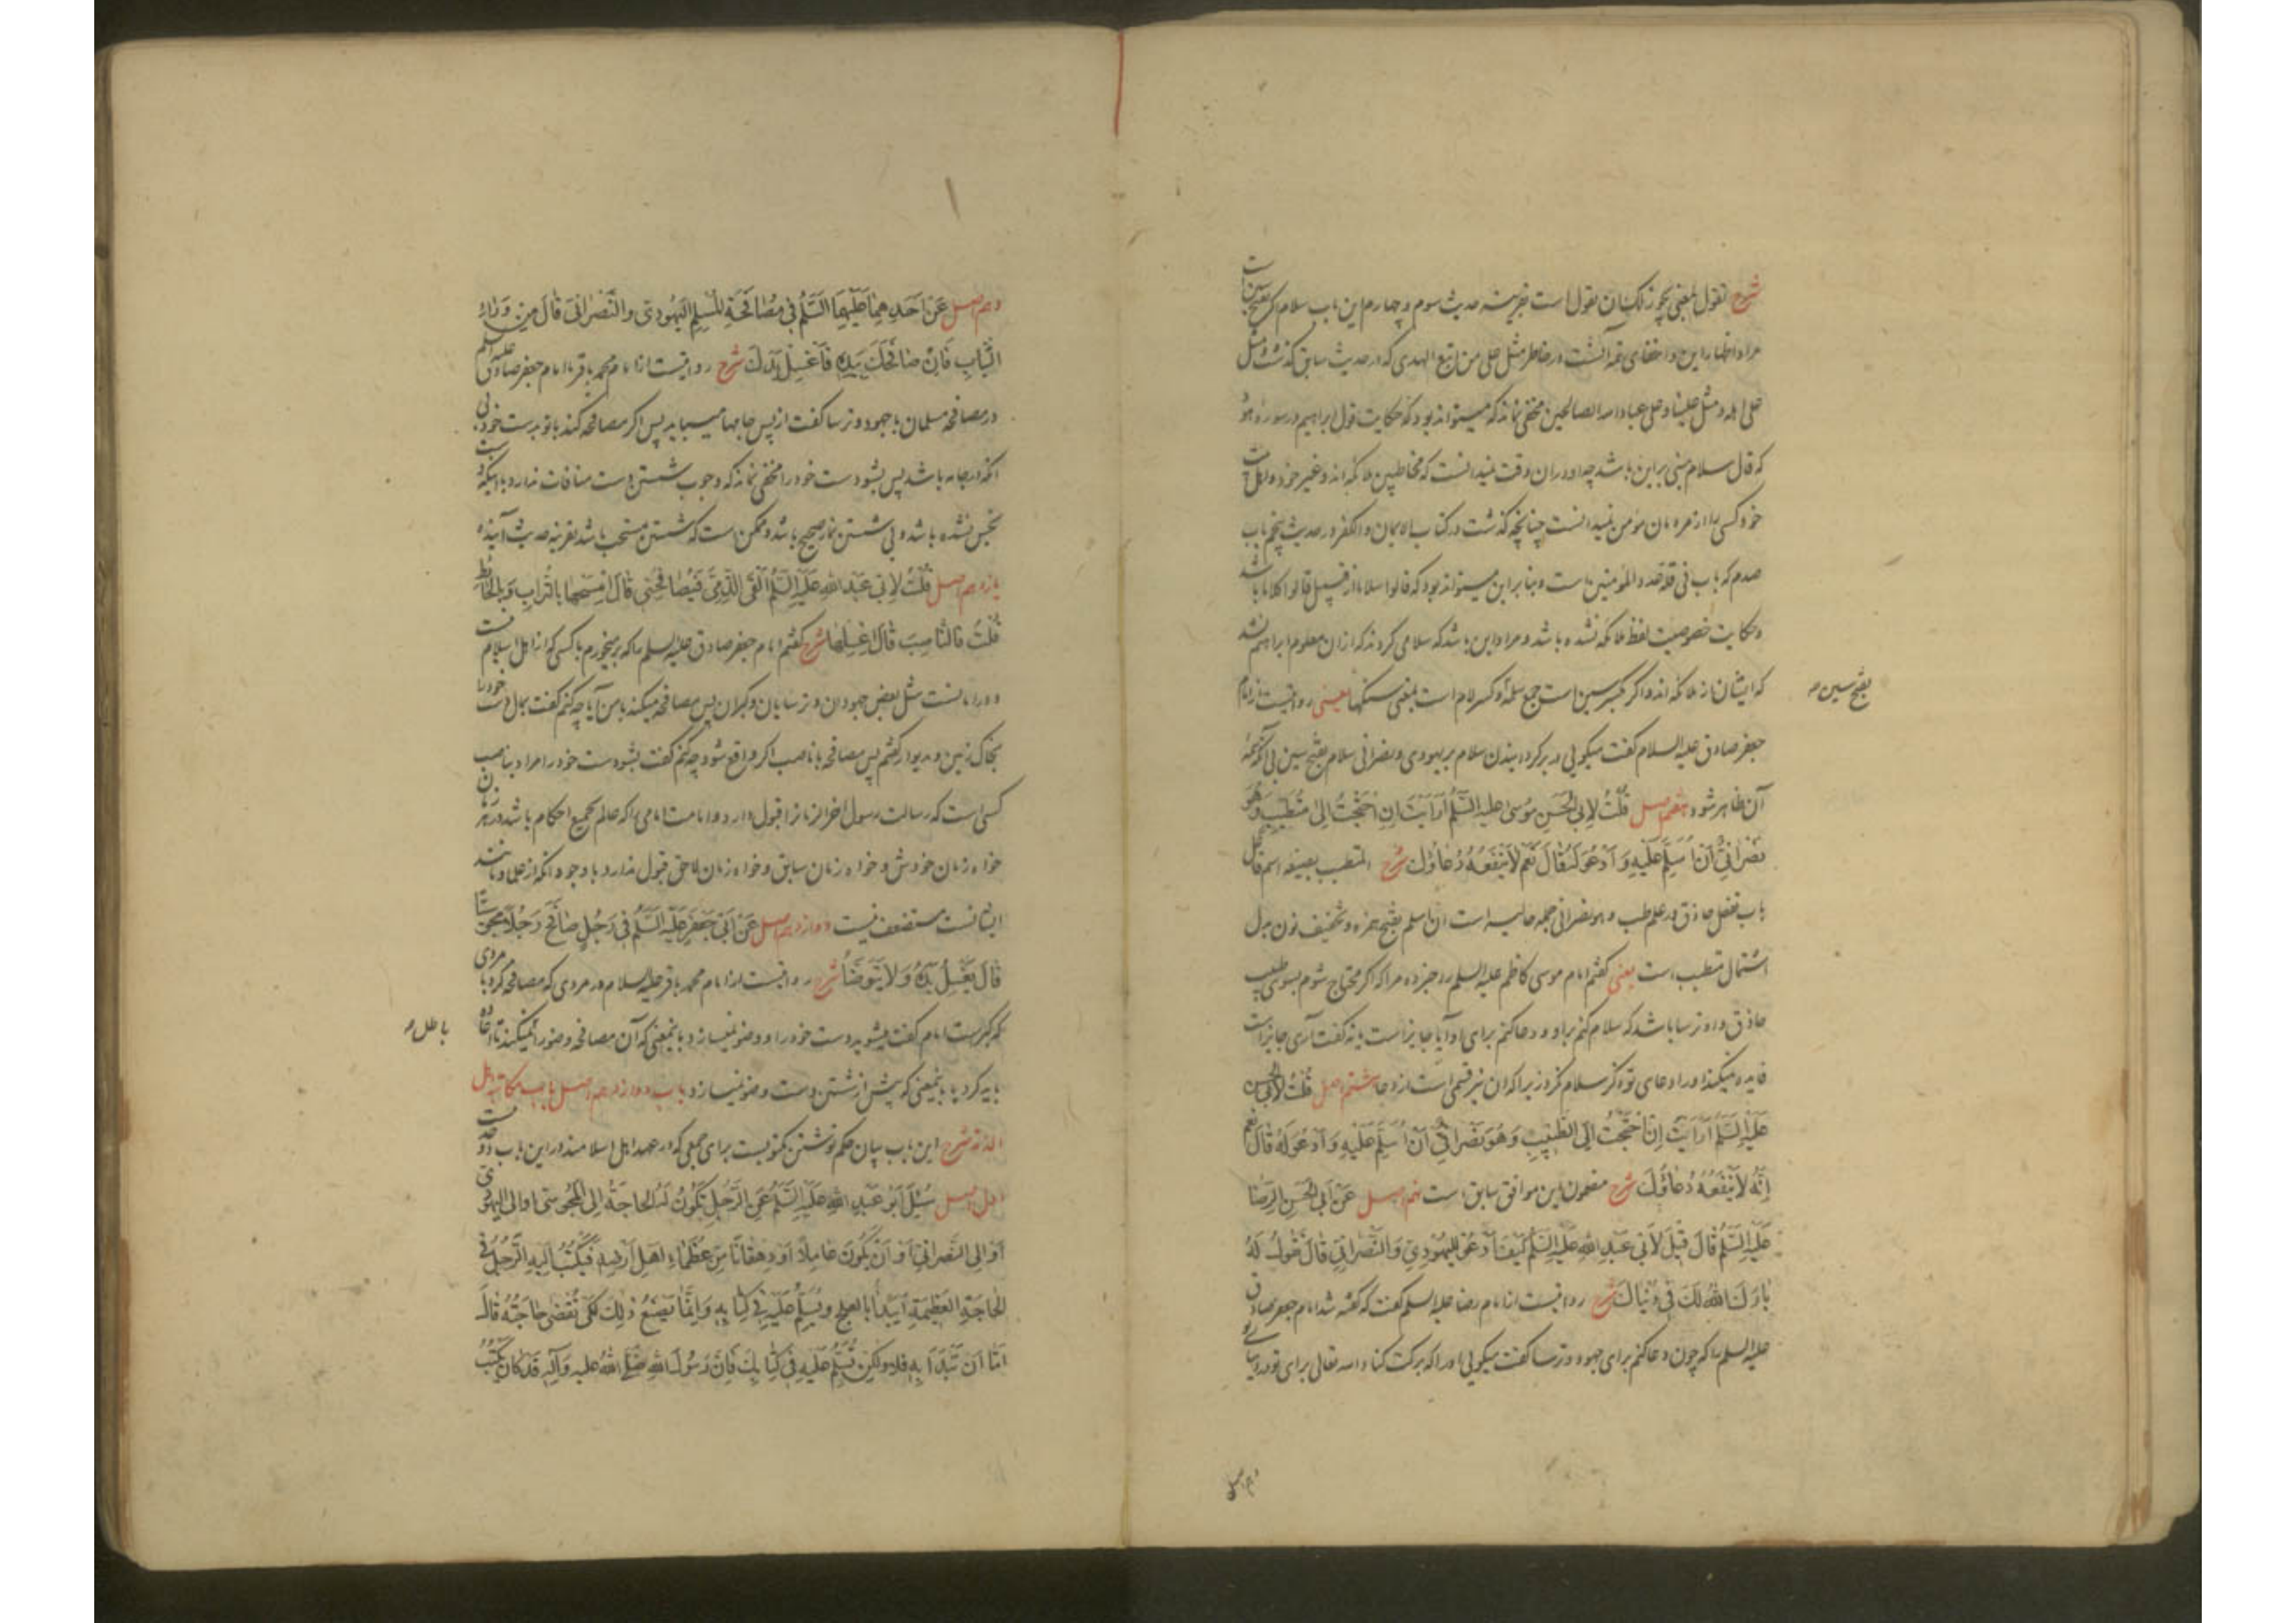 شرح تقول بمعنی تجوز لک ان تقول است بقرینه حدیث سوم و چهارم این باب سلام اگر بفتح سین است
مراد اظهار این و اخفای تتمه آنست در خاطر مثل علی من اتبع الهدی که در حدیث سابق گذشت و مثل
علی اهله و مثل علینا و علی عباد الله الصالحین مخفی نماند که میتواند بود که حکایت قول ابراهیم در سوره هود
که قال سلام مبنی بر این باشد چه او در ان وقت نمیدانست که مخاطبین ملائکه اند و غیر خود و اهل بیت
خود کسی را از مردمان مومن نمیدانست چنانچه گذشت در کتاب الایمان و الکفر در حدیث پنجم باب
صدم که باب فی قلة عدد المؤمنین است و بنا بر این میتواند بود که قالوا سلاما از قبیل قالوا کلاما باشد
و حکایت خصوصیت لفظ ملائکه نشده باشد و مراد این باشد که سلامی کردند که از ان معلوم ابراهیم نشد
که ایشان از ملائکه اند و اگر بکسر سین است جمع سلمه و کسر لام است بمعنی سنگها یعنی روایتست از امام
بفتح سین
جعفر صادق علیه السلام گفت میگویی در بر گردانیدن سلام بر یهودی و نصرانی سلام بفتح سین بی آنکه تتمه
آن ظاهر شود هفتم اصل قُلْتُ لِاَبِی الْحَسَنِ مُوسیٰ علیه السَّلَمُ اَرَاَیْتَ اِنِ احْتَجْتُ اِلیٰ مُتَطَبِّبٍ وَهُوَ
نَصْرانِیٌّ اَنْ اُسَلِّمَ عَلَیْهِ وَ اَدْعُوَ لَهُ قَالَ نَعَمْ لَا یَنْفَعُهُ دُعَاؤُكَ شرح المتطبب بصیغه اسم فاعل
باب تفعل حاذق در علم طب و هو نصرانی جمله حالیه است ان اسلم بفتح همزه و تخفیف نون بدل
اشتمال متطبب است یعنی گفتم امام موسی کاظم علیه السلم را خبر ده مرا که اگر محتاج شوم بسوی طبیب
حاذق و او ترسا باشد که سلام کنم بر او و دعا کنم برای او آیا جایز است یا نه گفت آری جایز است
فایده نمیکند او را دعای تو اگر سلام کردن زیرا که ان نیز قسمی است از دعا هشتم اصل قُلْتُ لِاَبِی الْحَسَنِ
عَلَیْهِ السَّلَمُ اَرَاَیْتَ اِنِ احْتَجْتُ اِلَی الطَّبِیبِ وَ هُوَ نَصْرَانِیٌّ اَنْ اُسَلِّمَ عَلَیْهِ وَ اَدْعُوَ لَهُ قَالَ نَعَمْ
اِنَّهُ لَا یَنْفَعُهُ دُعَاؤُكَ شرح مضمون این موافق سابق است نهم اصل عَنْ اَبِی الْحَسَنِ الرِّضَا
عَلَیْهِ السَّلَمُ قَالَ قِیلَ لِاَبِی عَبْدِ اللهِ عَلَیْهِ السَّلَمُ کَیْفَ اَدْعُو لِلْیَهُودِیِّ وَ النَّصْرَانِیِّ قَالَ تَقُولُ لَهُ
بَارَكَ اللهُ لَكَ فِی دُنْیَاكَ شرح روایتست از امام رضا علیه السلم گفت که گفته شد امام جعفر صادق
علیه السلم را که چون دعا کنم برای جهود و ترسا گفت میگویی او را که برکت کناد الله تعالی برای تو در دنیای تو
دهم اصل
دهم اصل عَنْ اَحَدِهِمَا عَلَیْهِمَا السَّلَمُ فِی مُصَافَحَةِ الْمُسْلِمِ الْیَهُودِیَّ وَ النَّصْرَانِیَّ قَالَ مِنْ وَرَاءِ
الثِّیَابِ فَاِنْ صَافَحَكَ بِیَدِهِ فَاغْسِلْ یَدَكَ شرح روایتست از امام محمد باقر یا امام جعفر صادق علیه السلم
در مصافحه مسلمان با جهود و ترسا گفت از پس جامها میباید پس اگر مصافحه کند با تو بدست خود بی
انکه در جامه باشد پس بشو دست خود را مخفی نماند که وجوب شستن دست منافات ندارد با اینکه دست
نجس نشده باشد و بی شستن نماز صحیح باشد و ممکن است که شستن مستحب باشد بقرینه حدیث آینده
یازدهم اصل قُلْتُ لِاَبِی عَبْدِ اللهِ عَلَیْهِ السَّلَمُ اَلْقَی الذِّمِّیَّ فَیُصَافِحُنِی قَالَ امْسَحْهَا بِالتُّرَابِ وَ بِالْحَائِطِ
قُلْتُ فَالنَّاصِبَ قَالَ اغْسِلْهَا شرح گفتم امام جعفر صادق علیه السلم را که بر میخورم با کسی که از اهل اسلام نیست
و در امانست مثل بعض جهودان و ترسایان و گبران پس مصافحه میکند با من آیا چه کنم گفت بمال دست خود را
بخاک زمین و بدیوار گفتم پس مصافحه با ناصب اگر واقع شود چه کنم گفت بشو دست خود را مراد بناصب
کسی است که رسالت رسول آخر الزمان را قبول دارد و امامت امامی را که عالم بجمیع احکام باشد در هر زمان
خواه زمان خودش و خواه زمان سابق و خواه زمان لاحق قبول ندارد با وجود آنکه از علما و مانند
ایشانست مستضعف نیست دوازدهم اصل عَنْ اَبِی جَعْفَرٍ عَلَیْهِ السَّلَمُ فِی رَجُلٍ صَافَحَ رَجُلًا مَجُوسِیًّا
قَالَ یَغْسِلُ یَدَهُ وَ لَا یَتَوَضَّأُ شرح روایتست از امام محمد باقر علیه السلام در مردی که مصافحه کرد با مردی
که گبرست امام گفت میشوید دست خود را و وضو نمیسازد باینمعنی که آن مصافحه وضو را نمیکند تا اعاده
باطل
باید کرد یا باینمعنی که پیش از شستن دست وضو نمیسازد باب دوازدهم اصل باب مکاتبة اهل
الذمة شرح این باب بیان حکم نوشتن مکتوبست برای جمعی که در عهد اهل اسلامند در این باب دو حدیث
اول اصل سُئِلَ اَبُو عَبْدِ اللهِ عَلَیْهِ السَّلَمُ عَنِ الرَّجُلِ یَکُونُ لَهُ الحَاجَةُ اِلَی الْمَجُوسِیِّ او الی الیَهُودِیِّ
اَوْ اِلَی النَّصْرَانِیِّ اَوْ اَنْ یَکُونَ عَامِلًا اَوْ دِهْقَانًا مِنْ عُظَمَاءِ اَهْلِ اَرْضِهِ فَیَکْتُبُ اِلَیْهِ الرَّجُلُ فِی
الْحَاجَةِ الْعَظِیمَةِ اَیَبْدَأُ بِالْعِلْجِ وَ یُسَلِّمُ عَلَیْهِ فِی کِتَابِهِ وَ اِنَّمَا یَصْنَعُ ذٰلِكَ لِکَیْ تُقْضٰی حَاجَتُهُ قَالَ
اَمَّا اَنْ تَبْدَاَ بِهِ فَلَا وَلٰکِنْ تُسَلِّمُ عَلَیْهِ فِی کِتَابِكَ فَاِنَّ رَسُولَ اللهِ صَلَّی اللهُ علیه وَ آلِهِ قَدْ کَانَ یَکْتُبُ